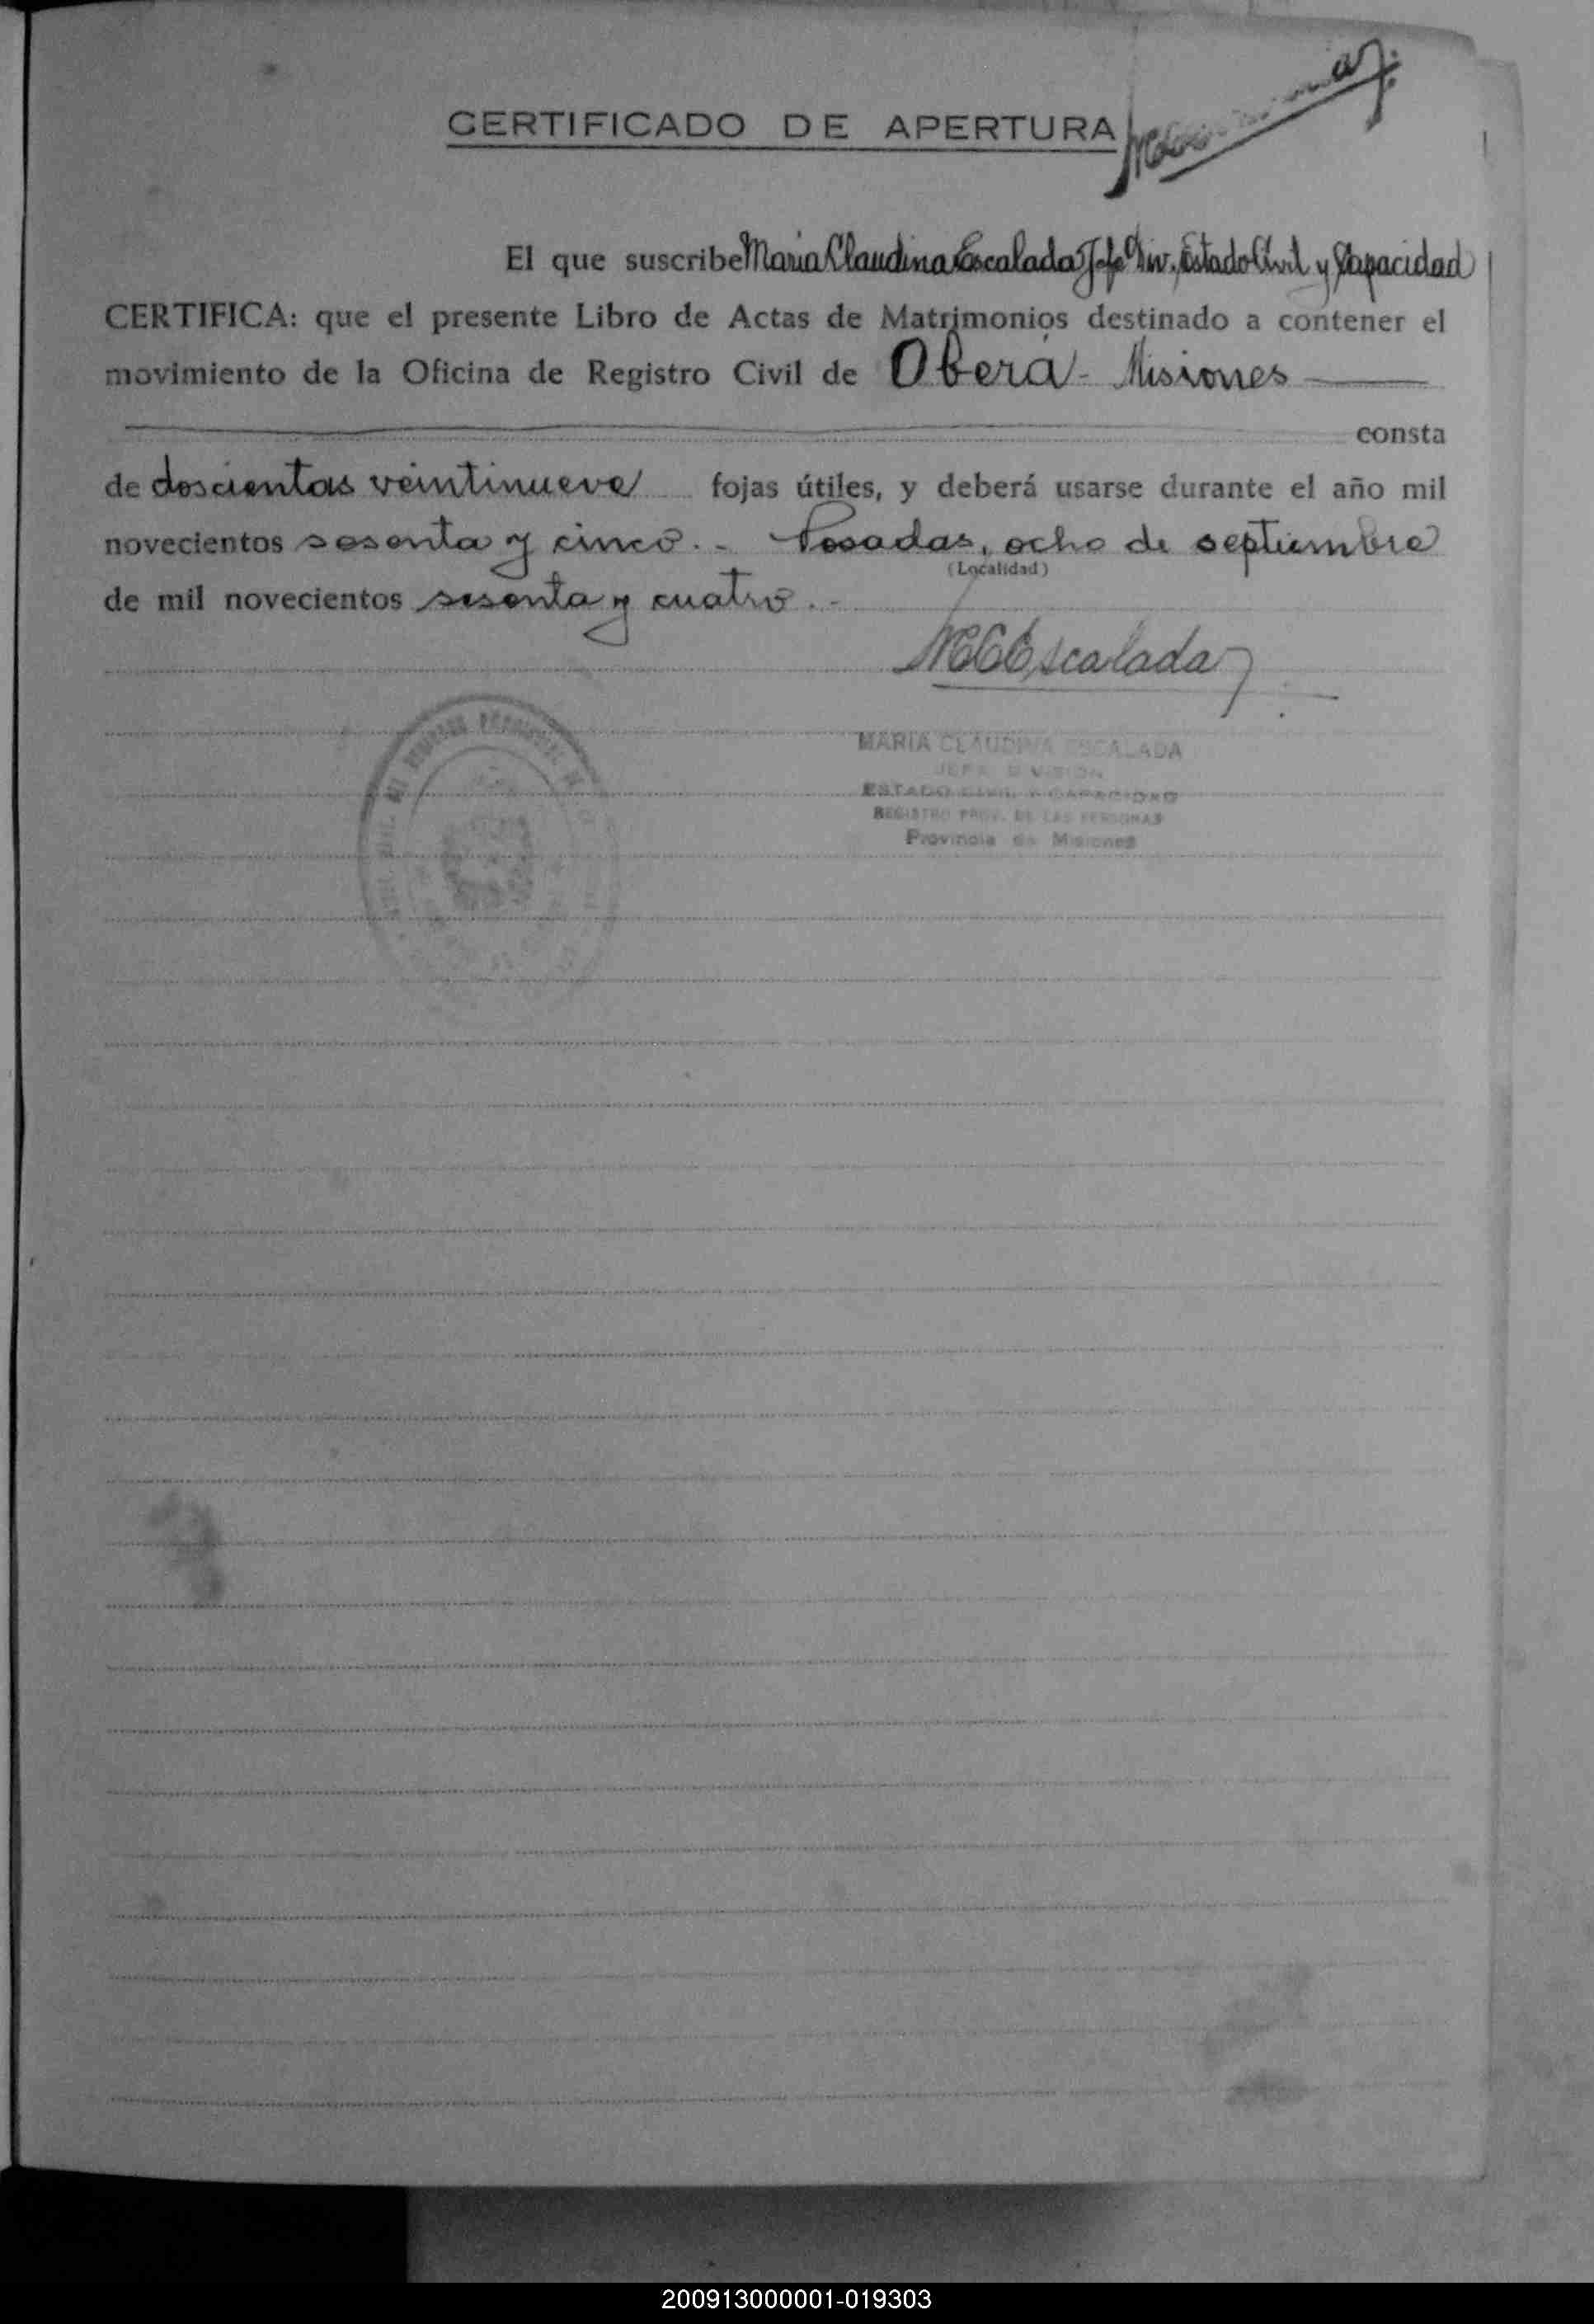 CERTIFICADO DE APERTURA
El que suscribe Maria Claudina Escalada Jefe Div. Estado Civil y Capacidad
CERTIFICA: que el presente Libro de Actas de Matrimonios destinado a contener el
movimiento de la Oficina de Registro Civil de Oberá - Misiones
consta
de doscientas veintinueve fojas útiles, y deberá usarse durante el año mil
novecientos sesenta y cinco. - Posadas, ocho de septiembre
(Localidad)
de mil novecientos sesenta y cuatro. -
MCEscalada
MARIA CLAUDINA ESCALADA
JEFA DIVISION
ESTADO CIVIL Y CAPACIDAD
REGISTRO PROV. DE LAS PERSONAS
Provincia de Misiones
200913000001-019303